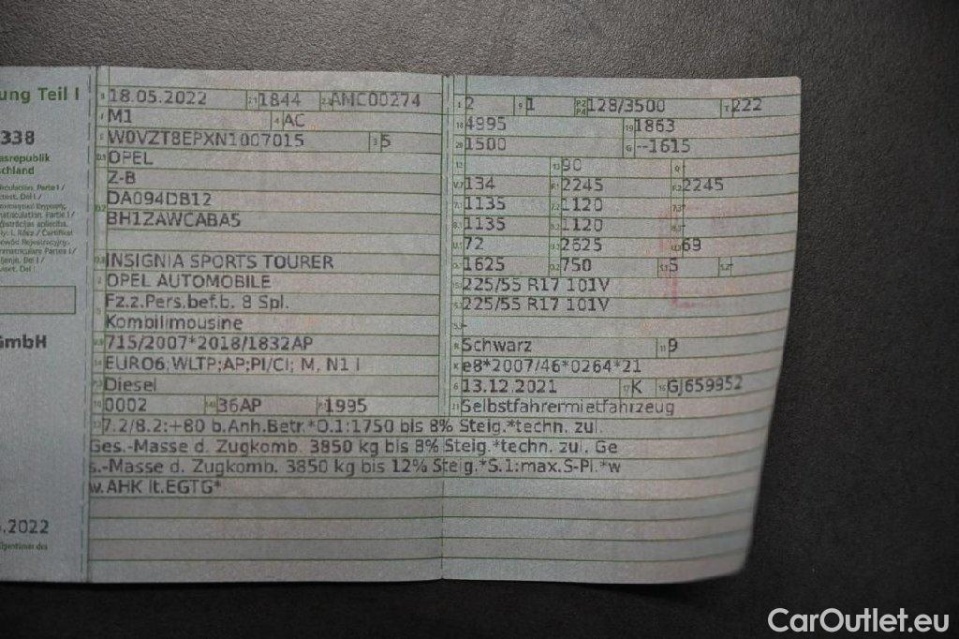 ung Teil I
338
asrepublik
schland
GmbH
.2022
18.05.2022 1844 AMC00274
M1 AC
W0VZT8EPXN1007015 5
OPEL
Z-B
DA094DB12
BH1ZAWCABA5
INSIGNIA SPORTS TOURER
OPEL AUTOMOBILE
Fz.z.Pers.bef.b. 8 Spl.
Kombilimousine
715/2007*2018/1832AP
EURO6;WLTP;AP;PI/CI; M, N1 I
Diesel
0002 36AP 1995
2 1 128/3500 222
4995 1863
1500 --1615
90
134 2245 2245
1135 1120
1135 1120
72 2625 69
1625 750 5
225/55 R17 101V
225/55 R17 101V
Schwarz 9
e8*2007/46*0264*21
13.12.2021 K GJ659952
Selbstfahrermietfahrzeug
7.2/8.2:+80 b.Anh.Betr.*O.1:1750 bis 8% Steig.*techn. zul.
Ges.-Masse d. Zugkomb. 3850 kg bis 8% Steig.*techn. zul. Ge
s.-Masse d. Zugkomb. 3850 kg bis 12% Steig.*S.1:max.S-Pl.*w
w.AHK lt.EGTG*
CarOutlet.eu